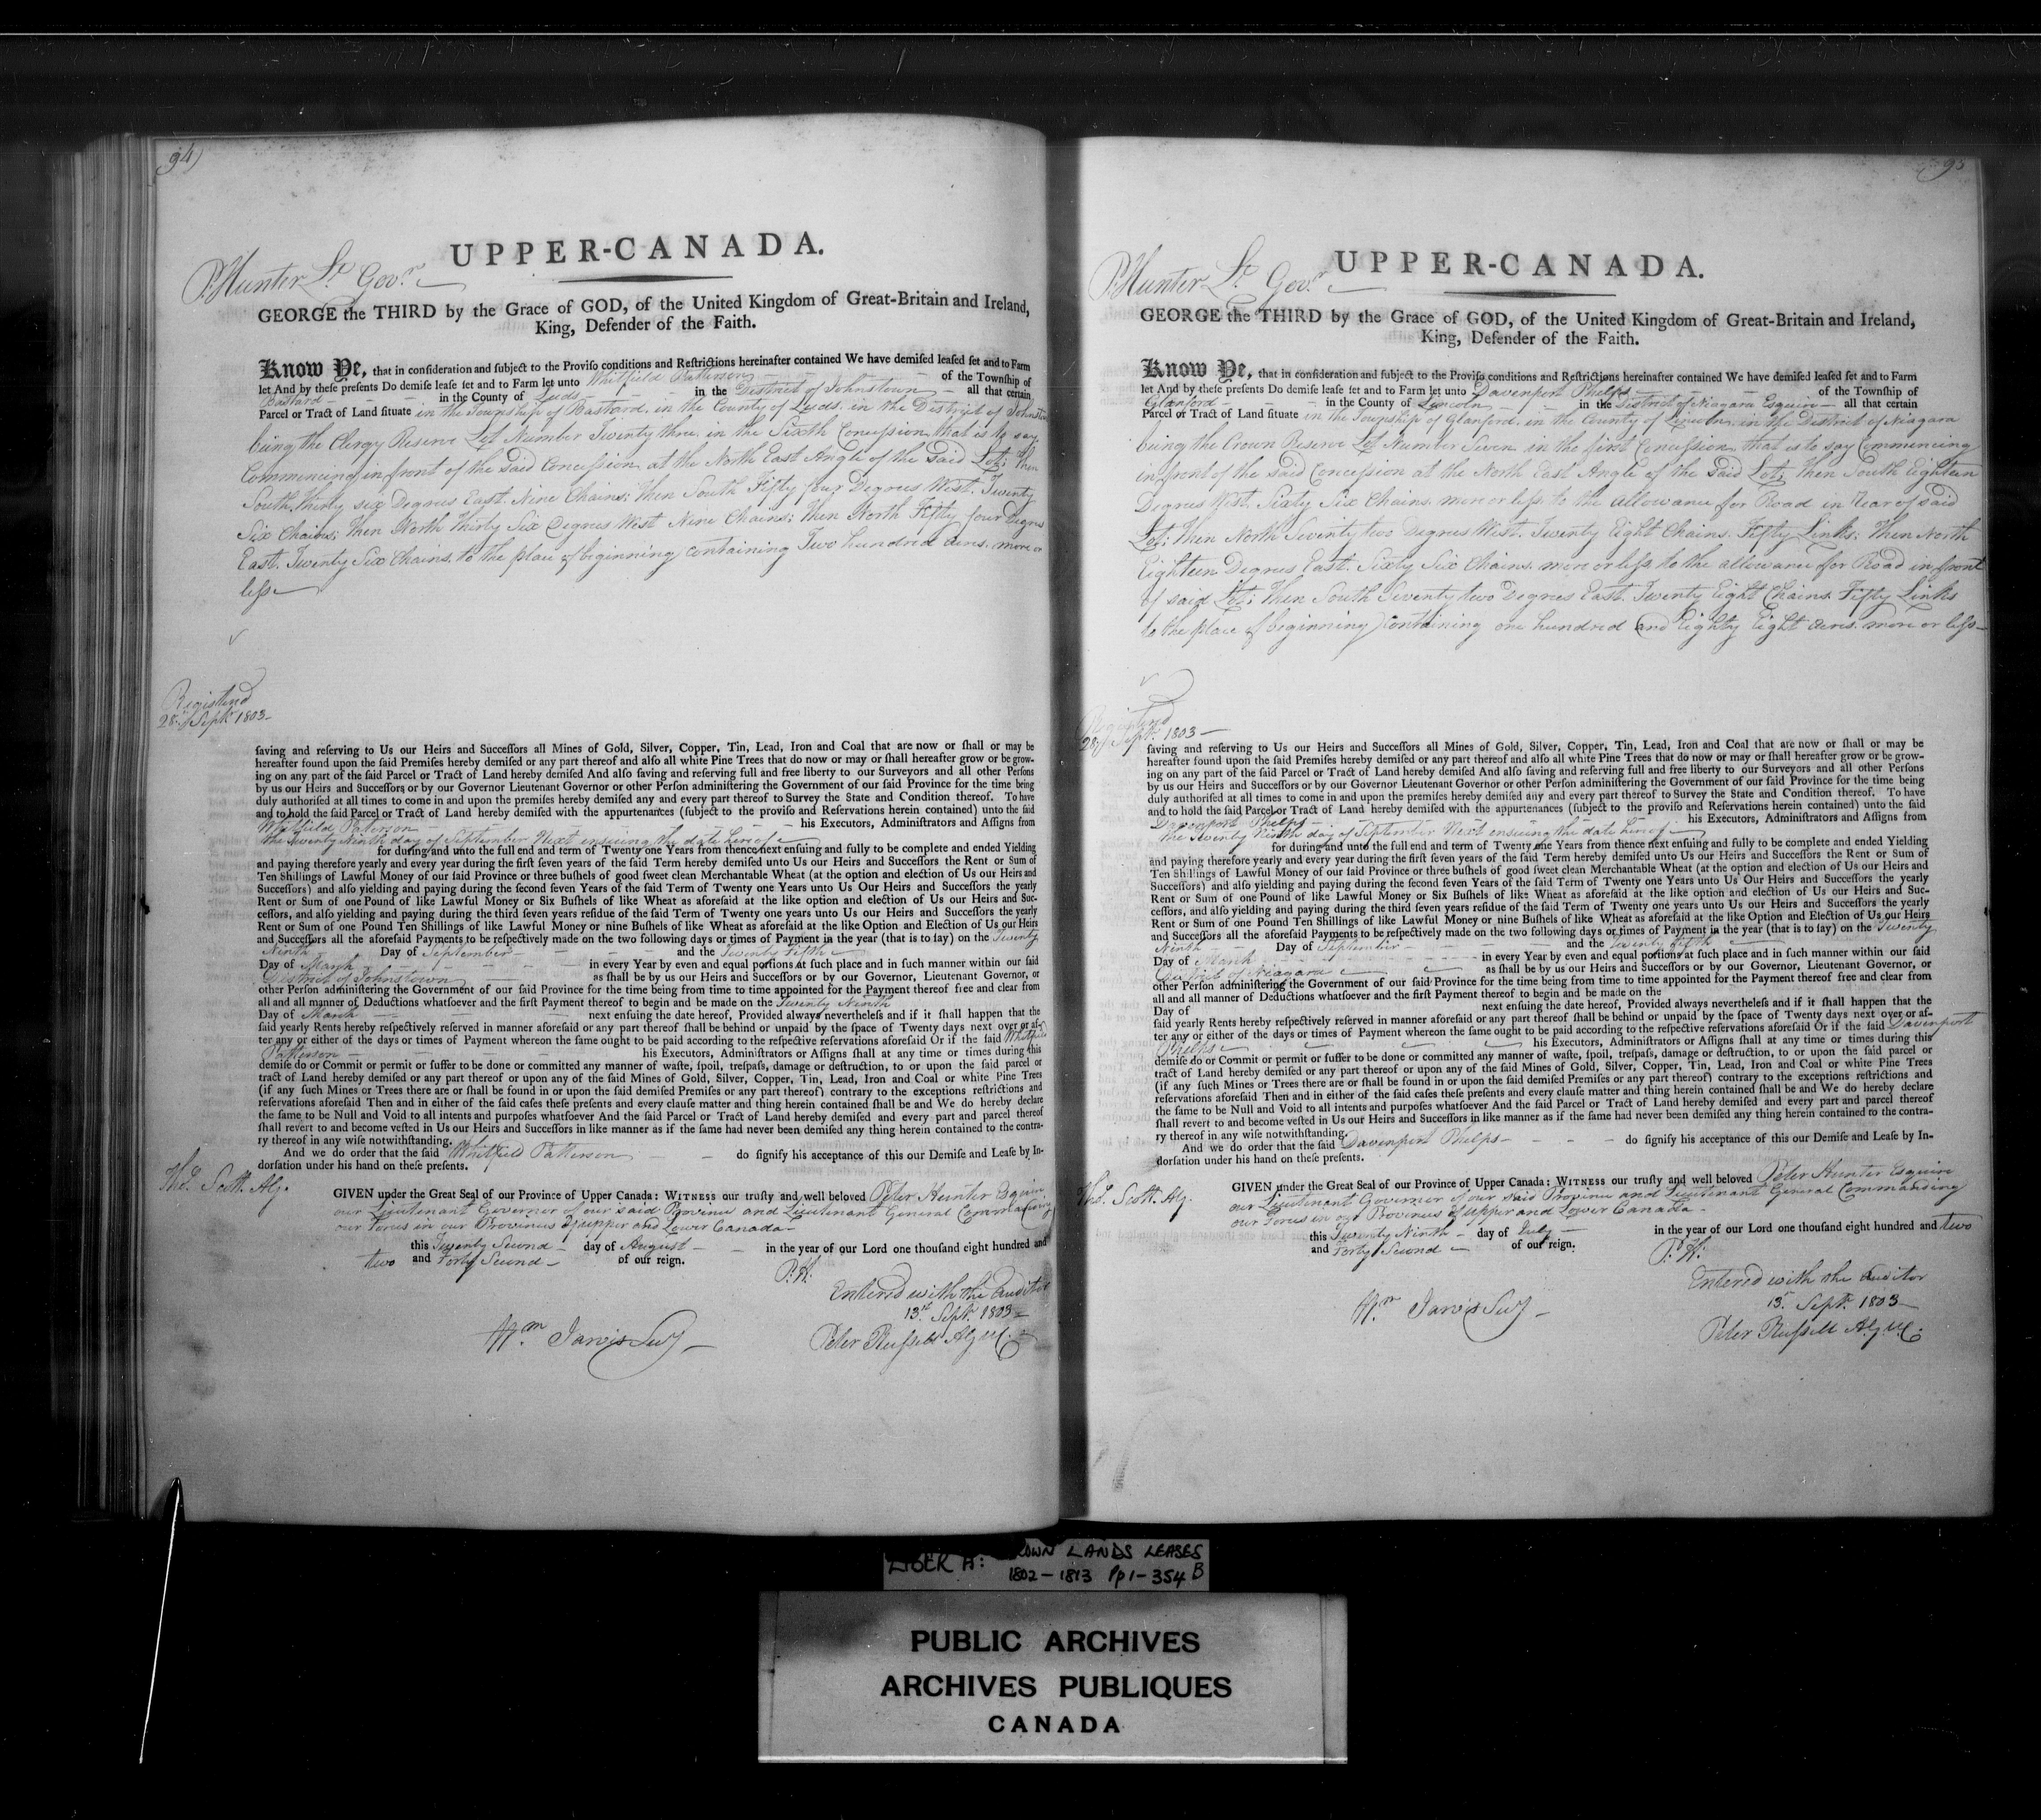 94)
UPPER-CANADA.
P. Hunter Lt Govr
GEORGE the THIRD by the Grace of GOD, of the United Kingdom of Great-Britain and Ireland,
King, Defender of the Faith.
Know Ye, that in conſideration and ſubject to the Proviſo conditions and Reſtrictions hereinafter contained We have demiſed leaſed ſet and to Farm
let And by theſe preſents Do demiſe leaſe ſet and to Farm let unto Whitfield Patterson of the Townſhip of
Bastard in the County of Leeds in the District of Johnstown all that certain
Parcel or Tract of Land ſituate in the Township of Bastard, in the County of Leeds, in the District of Johnstown
being the Clergy Reserve Lot Number Twenty three, in the Sixth Conceſsion, that is to say,
Commencing in front of the said Conceſsion, at the North East Angle of the said Lot; then
South Thirty six Degrees East, Nine Chains; then South Fifty four Degrees West, Twenty
Six Chains; then North Thirty Six Degrees West Nine Chains; then North Fifty four Degrees
East, Twenty Six Chains, to the place of beginning containing Two hundred acres, more or
leſs
Registered
28th Septr 1803
ſaving and reſerving to Us our Heirs and Succeſſors all Mines of Gold, Silver, Copper, Tin, Lead, Iron and Coal that are now or ſhall or may be
hereafter found upon the ſaid Premiſes hereby demiſed or any part thereof and alſo all white Pine Trees that do now or may or ſhall hereafter grow or be grow-
ing on any part of the ſaid Parcel or Tract of Land hereby demiſed And alſo ſaving and reſerving full and free liberty to our Surveyors and all other Perſons
by us our Heirs and Succeſſors or by our Governor Lieutenant Governor or other Perſon adminiſtering the Government of our ſaid Province for the time being
duly authoriſed at all times to come in and upon the premiſes hereby demiſed any and every part thereof to Survey the State and Condition thereof. To have
and to hold the ſaid Parcel or Tract of Land hereby demiſed with the appurtenances (ſubject to the proviſo and Reſervations herein contained) unto the ſaid
Whitfield Paterson his Executors, Adminiſtrators and Aſſigns from
the Twenty Ninth day of September Next ensuing the date hereof
for during and unto the full end and term of Twenty one Years from thence next enſuing and fully to be complete and ended Yielding
and paying therefore yearly and every year during the firſt ſeven years of the ſaid Term hereby demiſed unto Us our Heirs and Succeſſors the Rent or Sum of
Ten Shillings of Lawful Money of our ſaid Province or three buſhels of good ſweet clean Merchantable Wheat (at the option and election of Us our Heirs and
Succeſſors) and alſo yielding and paying during the ſecond ſeven Years of the ſaid Term of Twenty one Years unto Us Our Heirs and Succeſſors the yearly
Rent or Sum of one Pound of like Lawful Money or Six Buſhels of like Wheat as aforeſaid at the like option and election of Us our Heirs and Suc-
ceſſors, and alſo yielding and paying during the third ſeven years reſidue of the ſaid Term of Twenty one years unto Us our Heirs and Succeſſors the yearly
Rent or Sum of one Pound Ten Shillings of like Lawful Money or nine Buſhels of like Wheat as aforeſaid at the like Option and Election of Us our Heirs
and Succeſſors all the aforeſaid Payments to be reſpectively made on the two following days or times of Payment in the year (that is to ſay) on the Twenty
Ninth Day of September and the Twenty Fifth
Day of March in every Year by even and equal portions at ſuch place and in ſuch manner within our ſaid
District of Johnstown as ſhall be by us our Heirs and Succeſſors or by our Governor, Lieutenant Governor, or
other Perſon adminiſtering the Government of our ſaid Province for the time being from time to time appointed for the Payment thereof free and clear from
all and all manner of Deductions whatſoever and the firſt Payment thereof to begin and be made on the Twenty Ninth
Day of March next enſuing the date hereof, Provided always nevertheleſs and if it ſhall happen that the
ſaid yearly Rents hereby reſpectively reſerved in manner aforeſaid or any part thereof ſhall be behind or unpaid by the ſpace of Twenty days next over or af-
ter any or either of the days or times of Payment whereon the ſame ought to be paid according to the reſpective reſervations aforeſaid Or if the ſaid Whitfield
Patterson his Executors, Adminiſtrators or Aſſigns ſhall at any time or times during this
demiſe do or Commit or permit or ſuffer to be done or committed any manner of waſte, ſpoil, treſpaſs, damage or deſtruction, to or upon the ſaid parcel or
tract of Land hereby demiſed or any part thereof or upon any of the ſaid Mines of Gold, Silver, Copper, Tin, Lead, Iron and Coal or white Pine Trees
(if any ſuch Mines or Trees there are or ſhall be found in or upon the ſaid demiſed Premiſes or any part thereof) contrary to the exceptions reſtrictions and
reſervations aforeſaid Then and in either of the ſaid caſes theſe preſents and every clauſe matter and thing herein contained ſhall be and We do hereby declare
the ſame to be Null and Void to all intents and purpoſes whatſoever And the ſaid Parcel or Tract of Land hereby demiſed and every part and parcel thereof
ſhall revert to and become veſted in Us our Heirs and Succeſſors in like manner as if the ſame had never been demiſed any thing herein contained to the contra-
ry thereof in any wiſe notwithſtanding.
And we do order that the ſaid Whitfield Patterson do ſignify his acceptance of this our Demiſe and Leaſe by In-
dorſation under his hand on theſe preſents.
Thos Scott. Atg.
GIVEN under the Great Seal of our Province of Upper Canada: WITNESS our truſty and well beloved Peter Hunter Esquire
our Lieutenant Governor of our said Province and Lieutenant General Commanding
our Forces in our Provinces of upper and Lower Canada
this Twenty Second day of August in the year of our Lord one thouſand eight hundred and
two and Forty Second of our reign.
P. H.
Entered with the Auditor
13th Septr 1803
Wm Jarvis Secy
Peter Ruſsell
95
UPPER-CANADA.
P. Hunter Lt Govr
GEORGE the THIRD by the Grace of GOD, of the United Kingdom of Great-Britain and Ireland,
King, Defender of the Faith.
Know Ye, that in conſideration and ſubject to the Proviſo conditions and Reſtrictions hereinafter contained We have demiſed leaſed ſet and to Farm
let And by theſe preſents Do demiſe leaſe ſet and to Farm let unto Davenport Phelps of the Townſhip of
Glanford in the County of Lincoln in the District of Niagara Esquire all that certain
Parcel or Tract of Land ſituate in the Township of Glanford, in the County of Lincoln, in the District of Niagara
being the Crown Reserve Lot Number Seven in the first Conceſsion, that is to say Commencing
in front of the said Conceſsion at the North East Angle of the said Lot; then South Eighteen
Degrees West, Sixty Six Chains, more or leſs to the allowance for Road in rear of said
Lot; then North Seventy two Degrees West, Twenty Eight Chains, Fifty Links; then North
Eighteen Degrees East, Sixty Six Chains, more or leſs to the allowance for Road in front
of said Lot; then South Seventy two Degrees East, Twenty Eight Chains, Fifty Links
to the place of beginning containing one hundred and Eighty Eight acres more or leſs
Registered
28th Septr 1803
ſaving and reſerving to Us our Heirs and Succeſſors all Mines of Gold, Silver, Copper, Tin, Lead, Iron and Coal that are now or ſhall or may be
hereafter found upon the ſaid Premiſes hereby demiſed or any part thereof and alſo all white Pine Trees that do now or may or ſhall hereafter grow or be grow-
ing on any part of the ſaid Parcel or Tract of Land hereby demiſed And alſo ſaving and reſerving full and free liberty to our Surveyors and all other Perſons
by us our Heirs and Succeſſors or by our Governor Lieutenant Governor or other Perſon adminiſtering the Government of our ſaid Province for the time being
duly authoriſed at all times to come in and upon the premiſes hereby demiſed any and every part thereof to Survey the State and Condition thereof. To have
and to hold the ſaid Parcel or Tract of Land hereby demiſed with the appurtenances (ſubject to the proviſo and Reſervations herein contained) unto the ſaid
Davenport Phelps his Executors, Adminiſtrators and Aſſigns from
the Twenty Ninth day of September Next ensuing the date hereof
for during and unto the full end and term of Twenty one Years from thence next enſuing and fully to be complete and ended Yielding
and paying therefore yearly and every year during the firſt ſeven years of the ſaid Term hereby demiſed unto Us our Heirs and Succeſſors the Rent or Sum of
Ten Shillings of Lawful Money of our ſaid Province or three buſhels of good ſweet clean Merchantable Wheat (at the option and election of Us our Heirs and
Succeſſors) and alſo yielding and paying during the ſecond ſeven Years of the ſaid Term of Twenty one Years unto Us Our Heirs and Succeſſors the yearly
Rent or Sum of one Pound of like Lawful Money or Six Buſhels of like Wheat as aforeſaid at the like option and election of Us our Heirs and Suc-
ceſſors, and alſo yielding and paying during the third ſeven years reſidue of the ſaid Term of Twenty one years unto Us our Heirs and Succeſſors the yearly
Rent or Sum of one Pound Ten Shillings of like Lawful Money or nine Buſhels of like Wheat as aforeſaid at the like Option and Election of Us our Heirs
and Succeſſors all the aforeſaid Payments to be reſpectively made on the two following days or times of Payment in the year (that is to ſay) on the Twenty
Ninth Day of September and the Twenty fifth
Day of March in every Year by even and equal portions at ſuch place and in ſuch manner within our ſaid
District of Niagara as ſhall be by us our Heirs and Succeſſors or by our Governor, Lieutenant Governor, or
other Perſon adminiſtering the Government of our ſaid Province for the time being from time to time appointed for the Payment thereof free and clear from
all and all manner of Deductions whatſoever and the firſt Payment thereof to begin and be made on the
Day of next enſuing the date hereof, Provided always nevertheleſs and if it ſhall happen that the
ſaid yearly Rents hereby reſpectively reſerved in manner aforeſaid or any part thereof ſhall be behind or unpaid by the ſpace of Twenty days next over or af-
ter any or either of the days or times of Payment whereon the ſame ought to be paid according to the reſpective reſervations aforeſaid Or if the ſaid Davenport
Phelps his Executors, Adminiſtrators or Aſſigns ſhall at any time or times during this
demiſe do or Commit or permit or ſuffer to be done or committed any manner of waſte, ſpoil, treſpaſs, damage or deſtruction, to or upon the ſaid parcel or
tract of Land hereby demiſed or any part thereof or upon any of the ſaid Mines of Gold, Silver, Copper, Tin, Lead, Iron and Coal or white Pine Trees
(if any ſuch Mines or Trees there are or ſhall be found in or upon the ſaid demiſed Premiſes or any part thereof) contrary to the exceptions reſtrictions and
reſervations aforeſaid Then and in either of the ſaid caſes theſe preſents and every clauſe matter and thing herein contained ſhall be and We do hereby declare
the ſame to be Null and Void to all intents and purpoſes whatſoever And the ſaid Parcel or Tract of Land hereby demiſed and every part and parcel thereof
ſhall revert to and become veſted in Us our Heirs and Succeſſors in like manner as if the ſame had never been demiſed any thing herein contained to the contra-
ry thereof in any wiſe notwithſtanding.
And we do order that the ſaid Davenport Phelps do ſignify his acceptance of this our Demiſe and Leaſe by In-
dorſation under his hand on theſe preſents.
Thos. Scott. Atg.
GIVEN under the Great Seal of our Province of Upper Canada: WITNESS our truſty and well beloved Peter Hunter Esquire
our Lieutenant Governor of our said Province and Lieutenant General Commanding
our Forces in our Provinces of upper and Lower Canada
this Twenty Ninth day of July in the year of our Lord one thouſand eight hundred and two
and Forty Second of our reign.
P. H.
Entered with the Auditor
13th Septr 1803
Wm Jarvis Secy
Peter Ruſsell
LIBER A: CROWN LANDS LEASES
1802-1813 Pp 1-354 B
PUBLIC ARCHIVES
ARCHIVES PUBLIQUES
CANADA